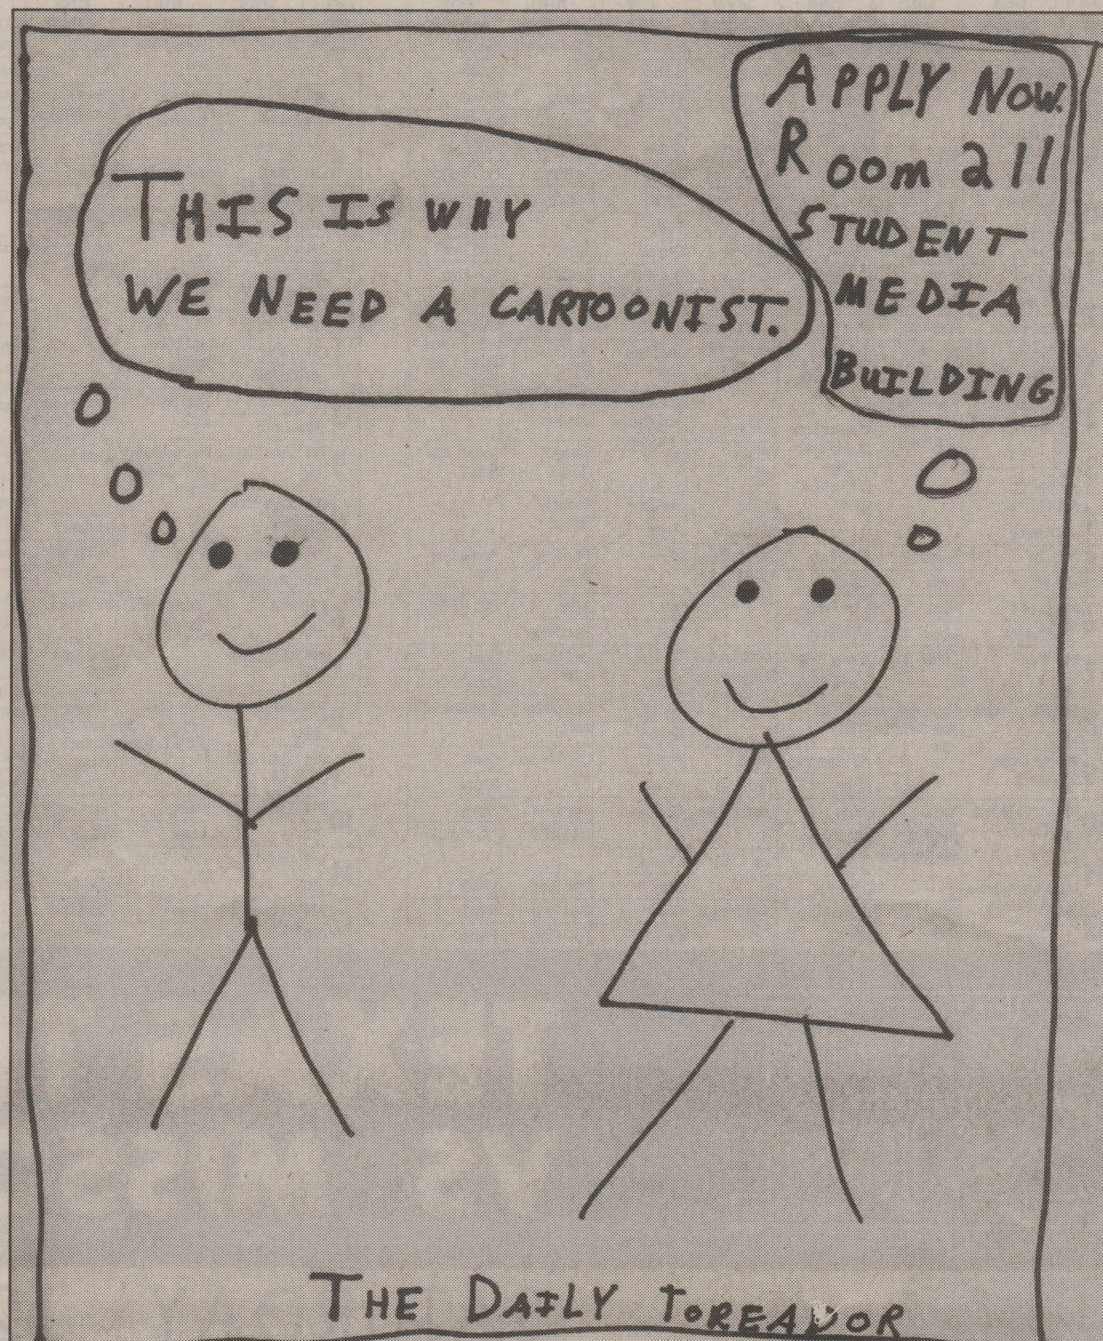 THIS IS WHY
WE NEED A CARTOONIST.
APPLY NOW.
ROOM 211
STUDENT
MEDIA
BUILDING
THE DAILY TOREADOR